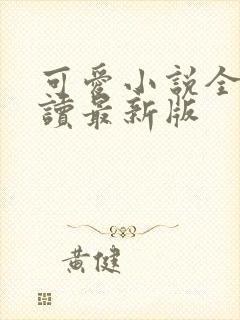 可愛小説全
讀最新版
黃健